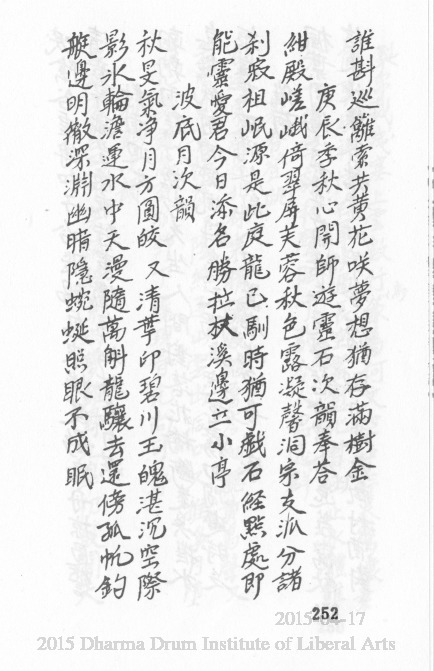 誰斟巡籬索共黃花咲夢想猶存滿樹金
庚辰季秋心開師遊靈石次韻奉答
紺殿嵯峨倚翠屏芙蓉秋色露凝馨洞宗支派分諸
刹寂祖岷源是此庭龍已馴時猶可戲石経點處即
能靈愛君今日添名勝拉杖溪邊立小亭
波底月次韻
秋旻氣净月方圓皎又清華印碧川玉魄湛沉空際
影氷輪澹運水中天漫隨萬斛龍驤去還傍孤帆釣
艇邊明徹深淵幽暗隱蜿蜒照眼不成眠
252
2015-04-17
2015 Dharma Drum Institute of Liberal Arts